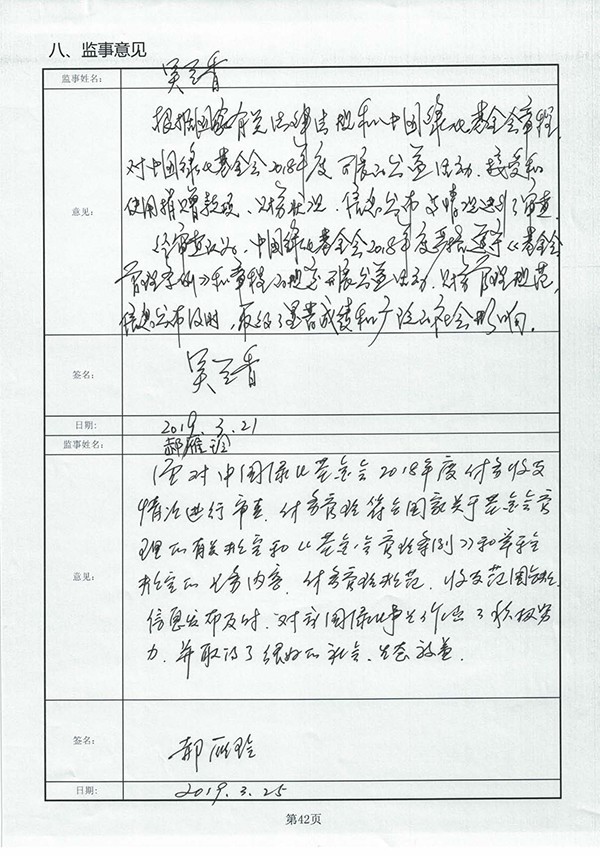 八、监事意见
监事姓名:
吴兰香
意见:
根据国家有关法律法规和《中国绿化基金会章程》
对中国绿化基金会2018年度开展的公益活动、接受和
使用捐赠款项、财务状况、信息公布等情况进行了审查。
经审查认为:中国绿化基金会2018年度严格遵守《基金会
管理条例》和章程的规定开展公益活动,财务管理规范,
信息公布及时,取得了显著成绩和广泛的社会影响。
签名:
吴兰香
日期:
2019.3.21
监事姓名:
郝雁玲
意见:
经对中国绿化基金会2018年度财务收支
情况进行审查,财务管理符合国家关于基金会管
理的有关规定和《基金会管理条例》和章程
规定的业务内容,财务管理规范,收支范围合规,
信息发布及时,对我国绿化事业作出了积极努
力,并取得了很好的社会、生态效益。
签名:
郝雁玲
日期:
2019.3.25
第42页